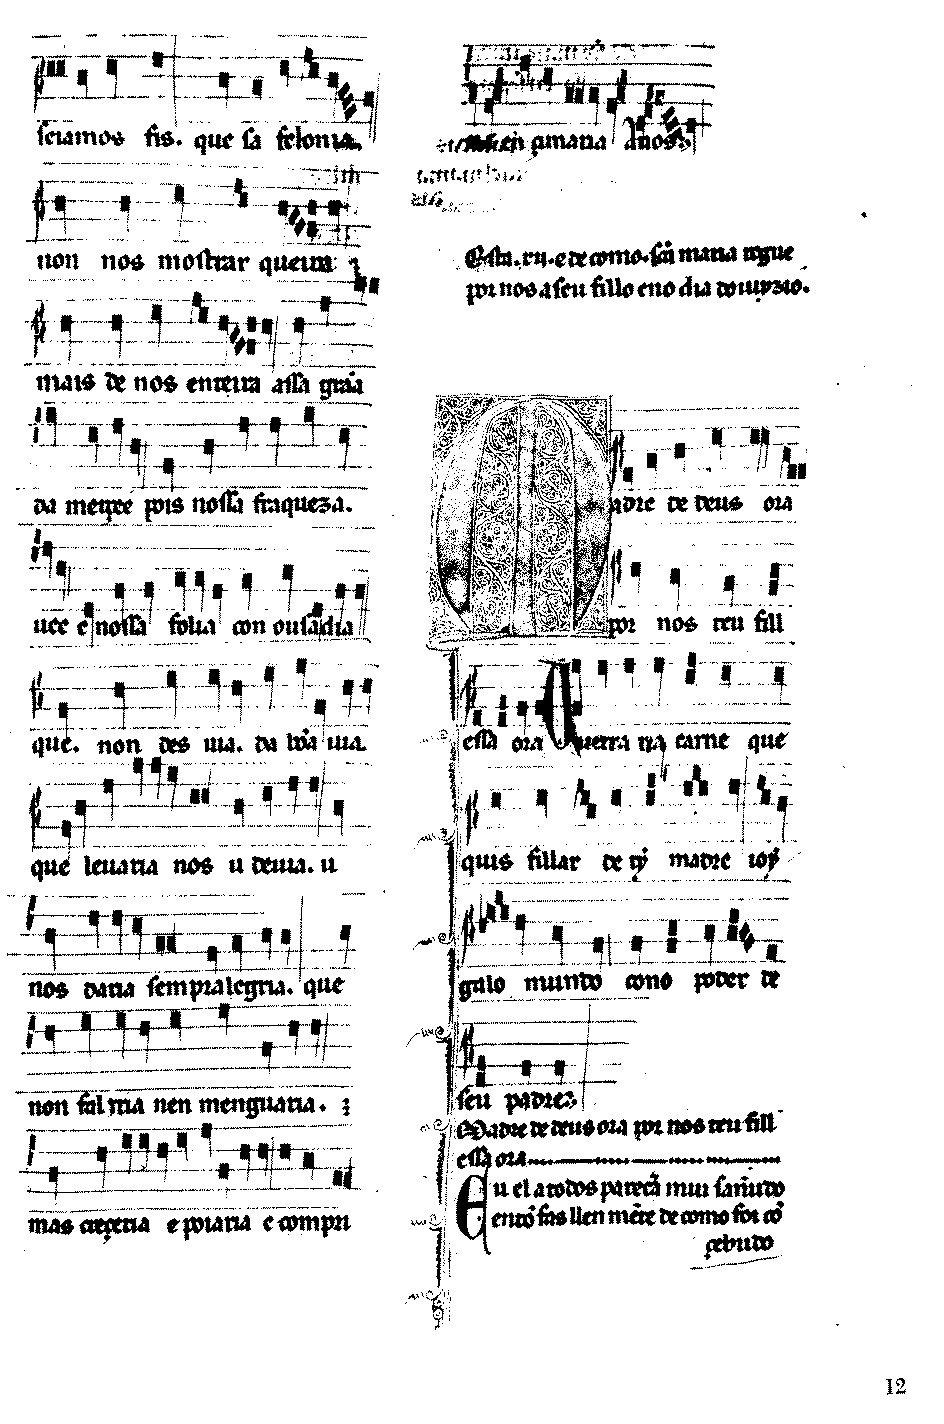 seiamos fis. que sa felonia.
non nos mostrar queira
mais de nos enteira assa graça
da merçee pois nossa fraqueza.
uee e nossa folia con ousadia
que. non des uia. da bõa uia.
que leuaria nos u deuia. u
nos daria sempralegria. que
non falrria nen menguaria.
mas creçeria e poiaria e compri
en çimaria Anos
Esta .vii. e de como. sca maria rogue
por nos a seu fillo eno dia do iuyzio.
Madre de deus ora
por nos teu fill
essa ora Uerra na carne que
quis fillar de ty madre ioy
galo mundo cono poder de
seu padre
Madre de deus ora por nos teu fill
essa ora
E u el a todos parecã mui sañudo
entõ fas llen mẽte de como foi cõ
çebudo
12